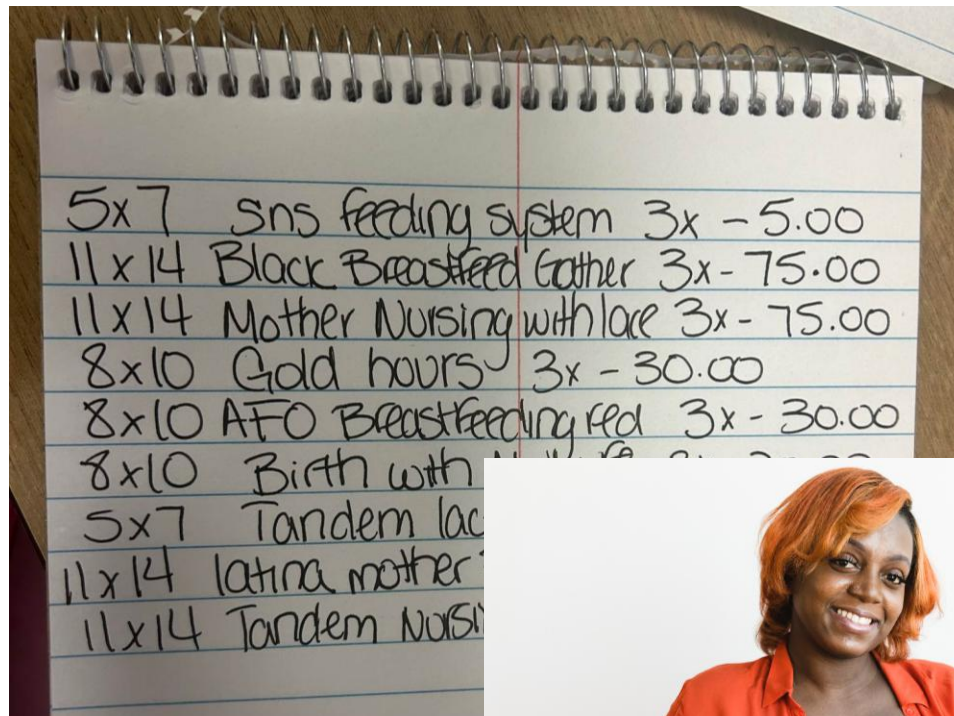 5x7 sns feeding system 3x - 5.00
11x14 Black Breastfeed Gather 3x - 75.00
11x14 Mother Nursing with lace 3x - 75.00
8x10 Gold hours 3x - 30.00
8x10 AFO Breastfeeding red 3x - 30.00
8x10 Birth with
5x7 Tandem
11x14 latina mother
11x14 Tandem